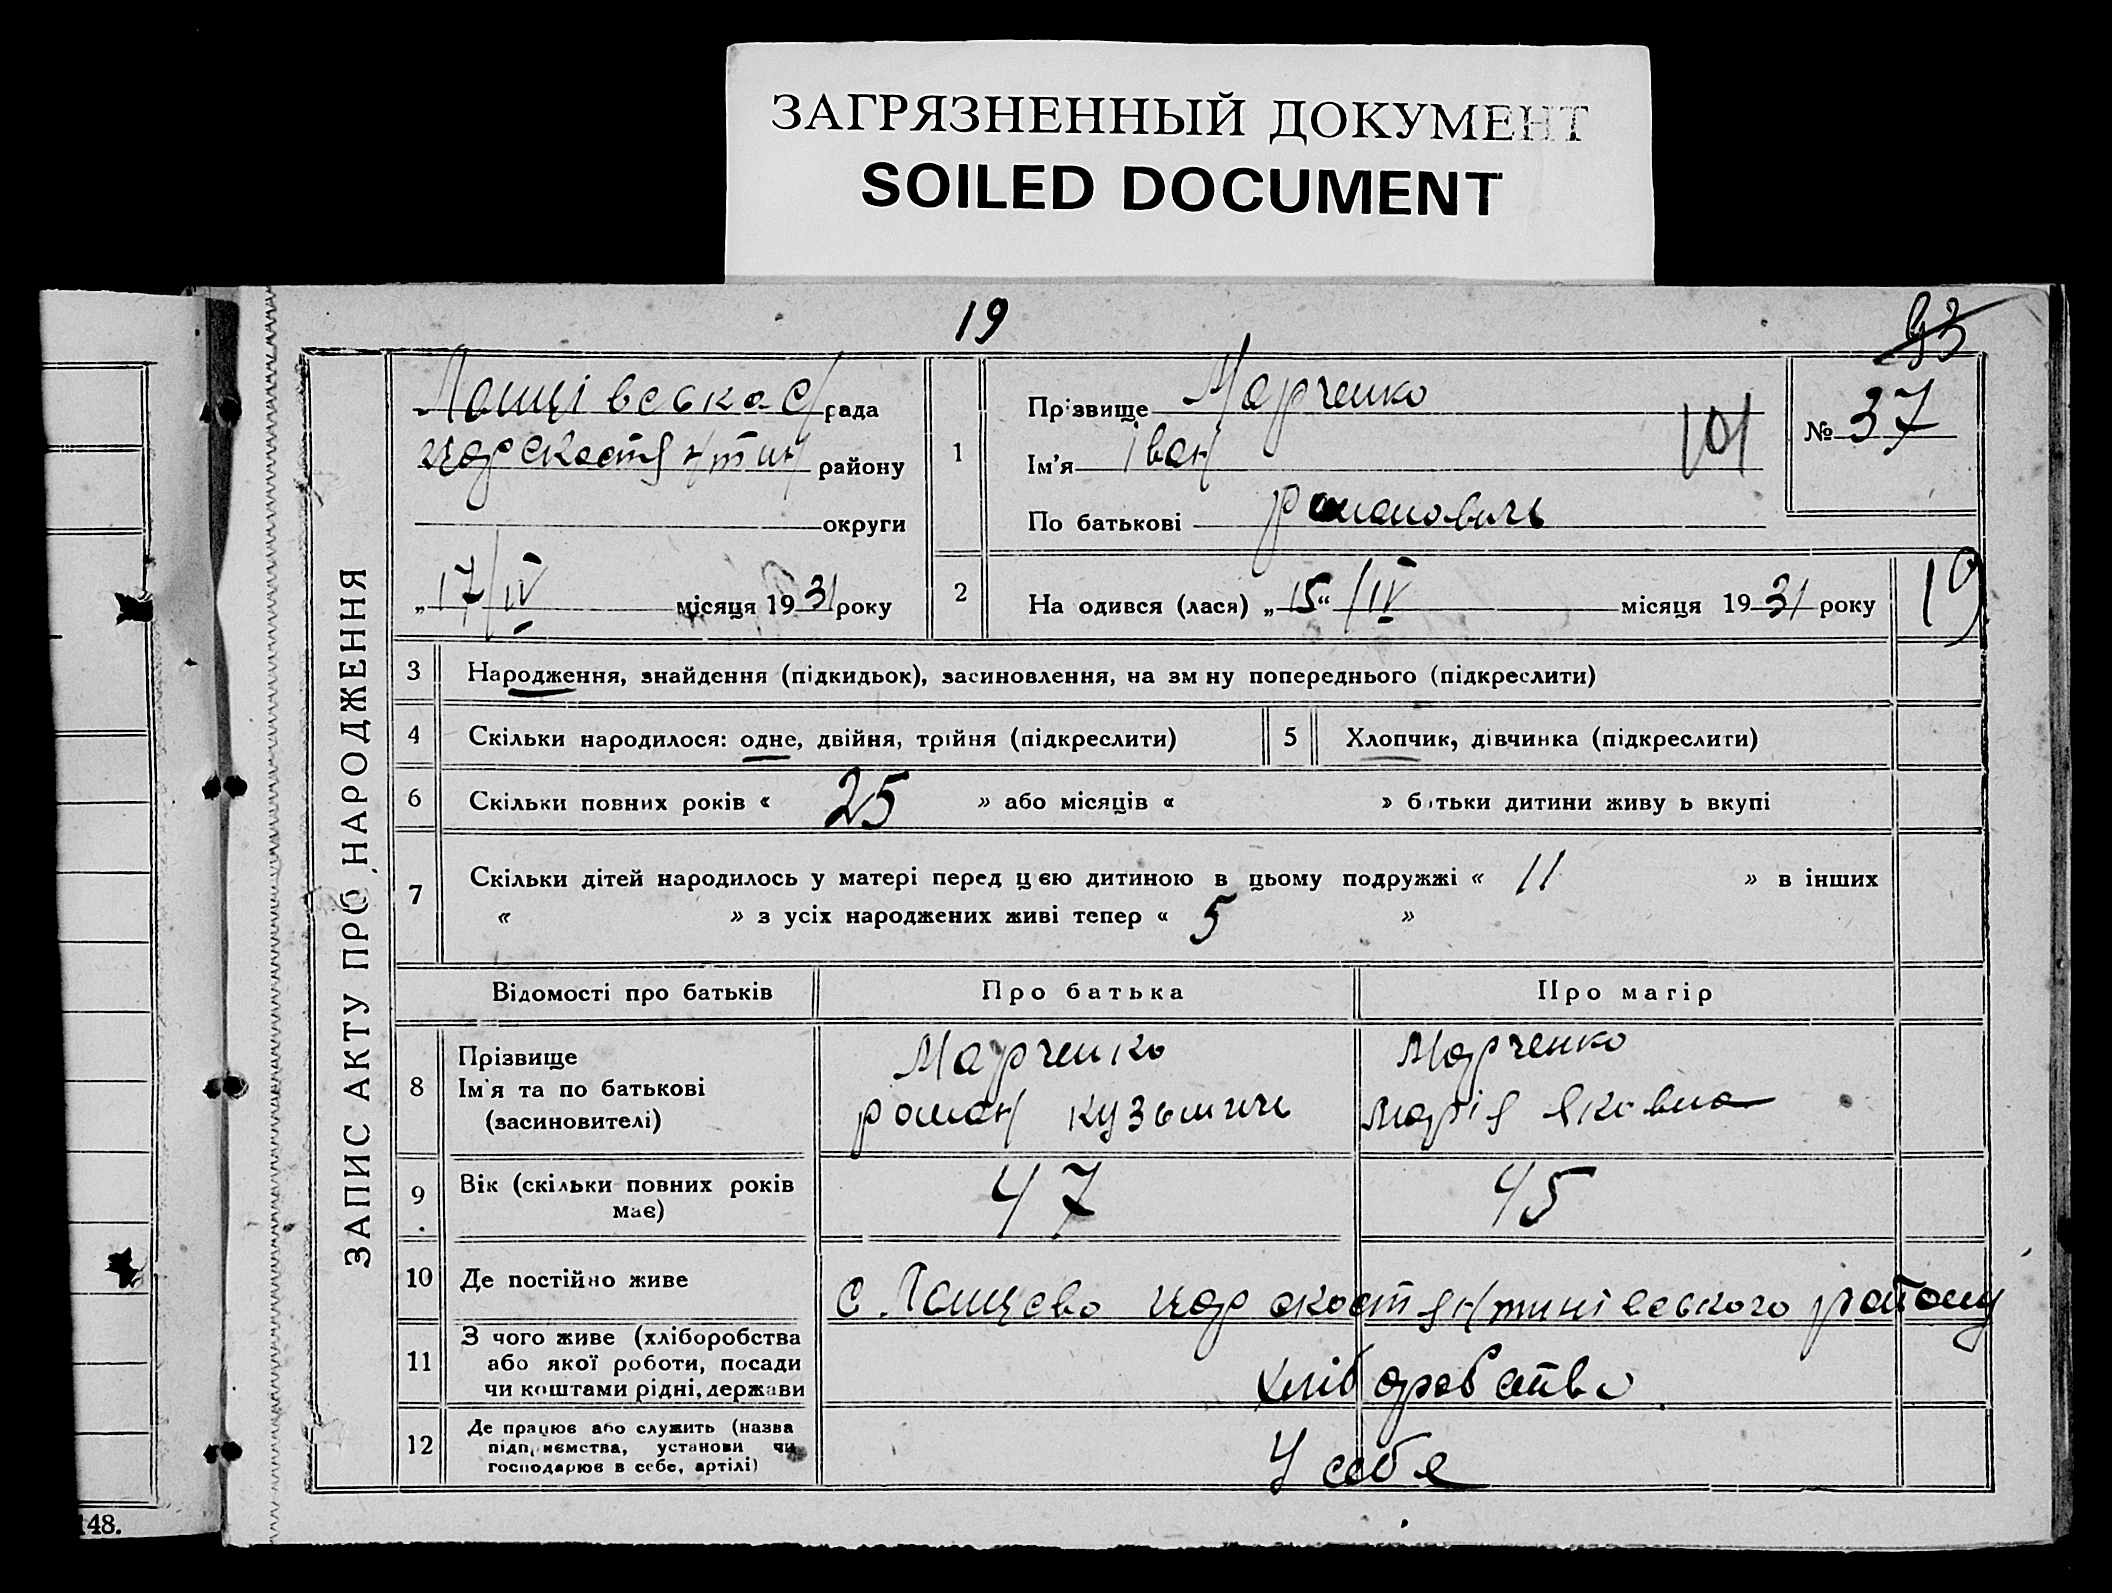 ЗАГРЯЗНЕННЫЙ ДОКУМЕНТ
SOILED DOCUMENT
19
93
ЗАПИС АКТУ ПРО НАРОДЖЕННЯ
Лащівська с/рада
Царскостянтин району
округи
„17/IV місяця 1931 року
1
Прізвище Марченко
Ім'я Іван
По батькові романовичь
101
№ 37
2
На одився (лася) „15“ /IV місяця 1931 року
19
3 Народження, знайдення (підкидьок), засиновлення, на зм ну попереднього (підкреслити)
4 Скільки народилося: одне, двійня, трійня (підкреслити)
5 Хлопчик, дівчинка (підкреслити)
6 Скільки повних років « 25 » або місяців « » б тьки дитини живу ь вкупі
7 Скільки дітей народилось у матері перед цією дитиною в цьому подружжі « 11 » в інших
« » з усіх народжених живі тепер « 5 »
Відомості про батьків Про батька Про матір
8 Прізвище
Ім'я та по батькові
(засиновителі)
Марченко
роман кузьмичь
Марченко
Марія Яковна
9 Вік (скільки повних років
має)
47 45
10 Де постійно живе
с. Лащево Царскостянтинівського району
11 З чого живе (хліборобства
або якої роботи, посади
чи коштами рідні, держави
хліборобство
12 Де працює або служить (назва
підприємства, установи чи
господарює в себе, артілі)
У себе
48.